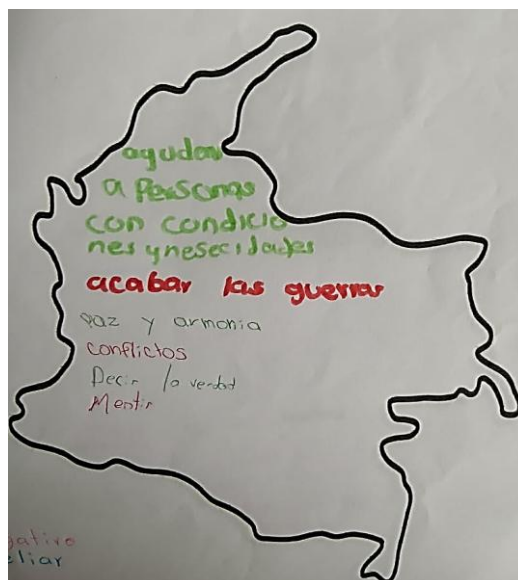 ayudar
a personas
con condicio
nes y nesecidades
acabar las guerras
paz y armonia
conflictos
Decir la verdad
Mentir
gativo
eliar